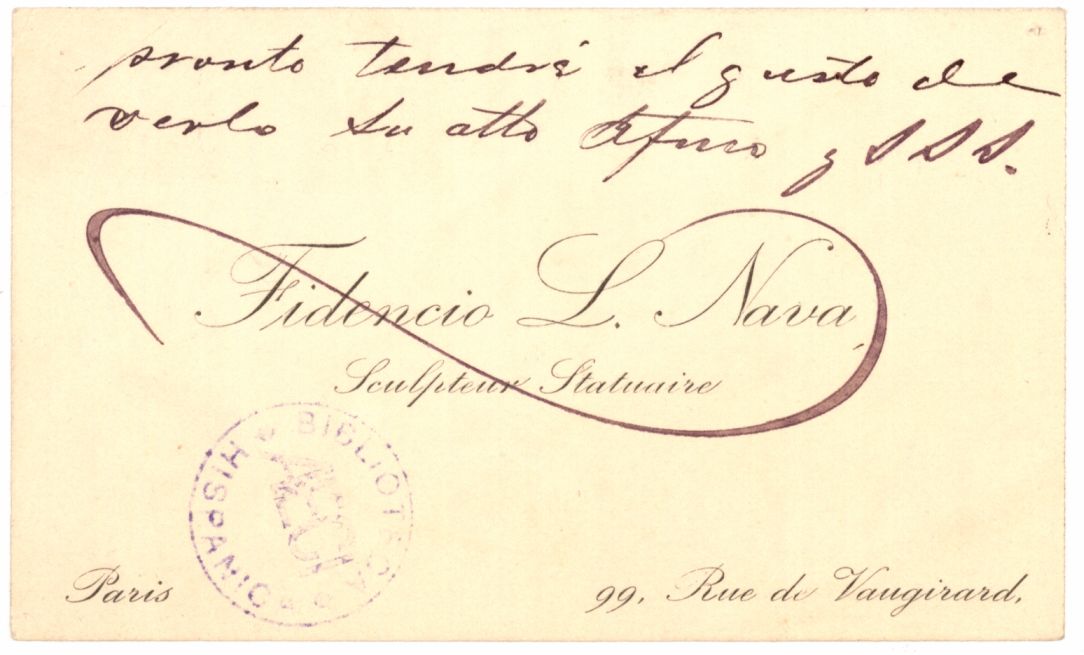 pronto tendré el gusto de
verlo su atto afmo y S S S.
Fidencio L. Nava
Sculpteur Statuaire
BIBLIOTECA HISPANIC
Paris
99, Rue de Vaugirard.